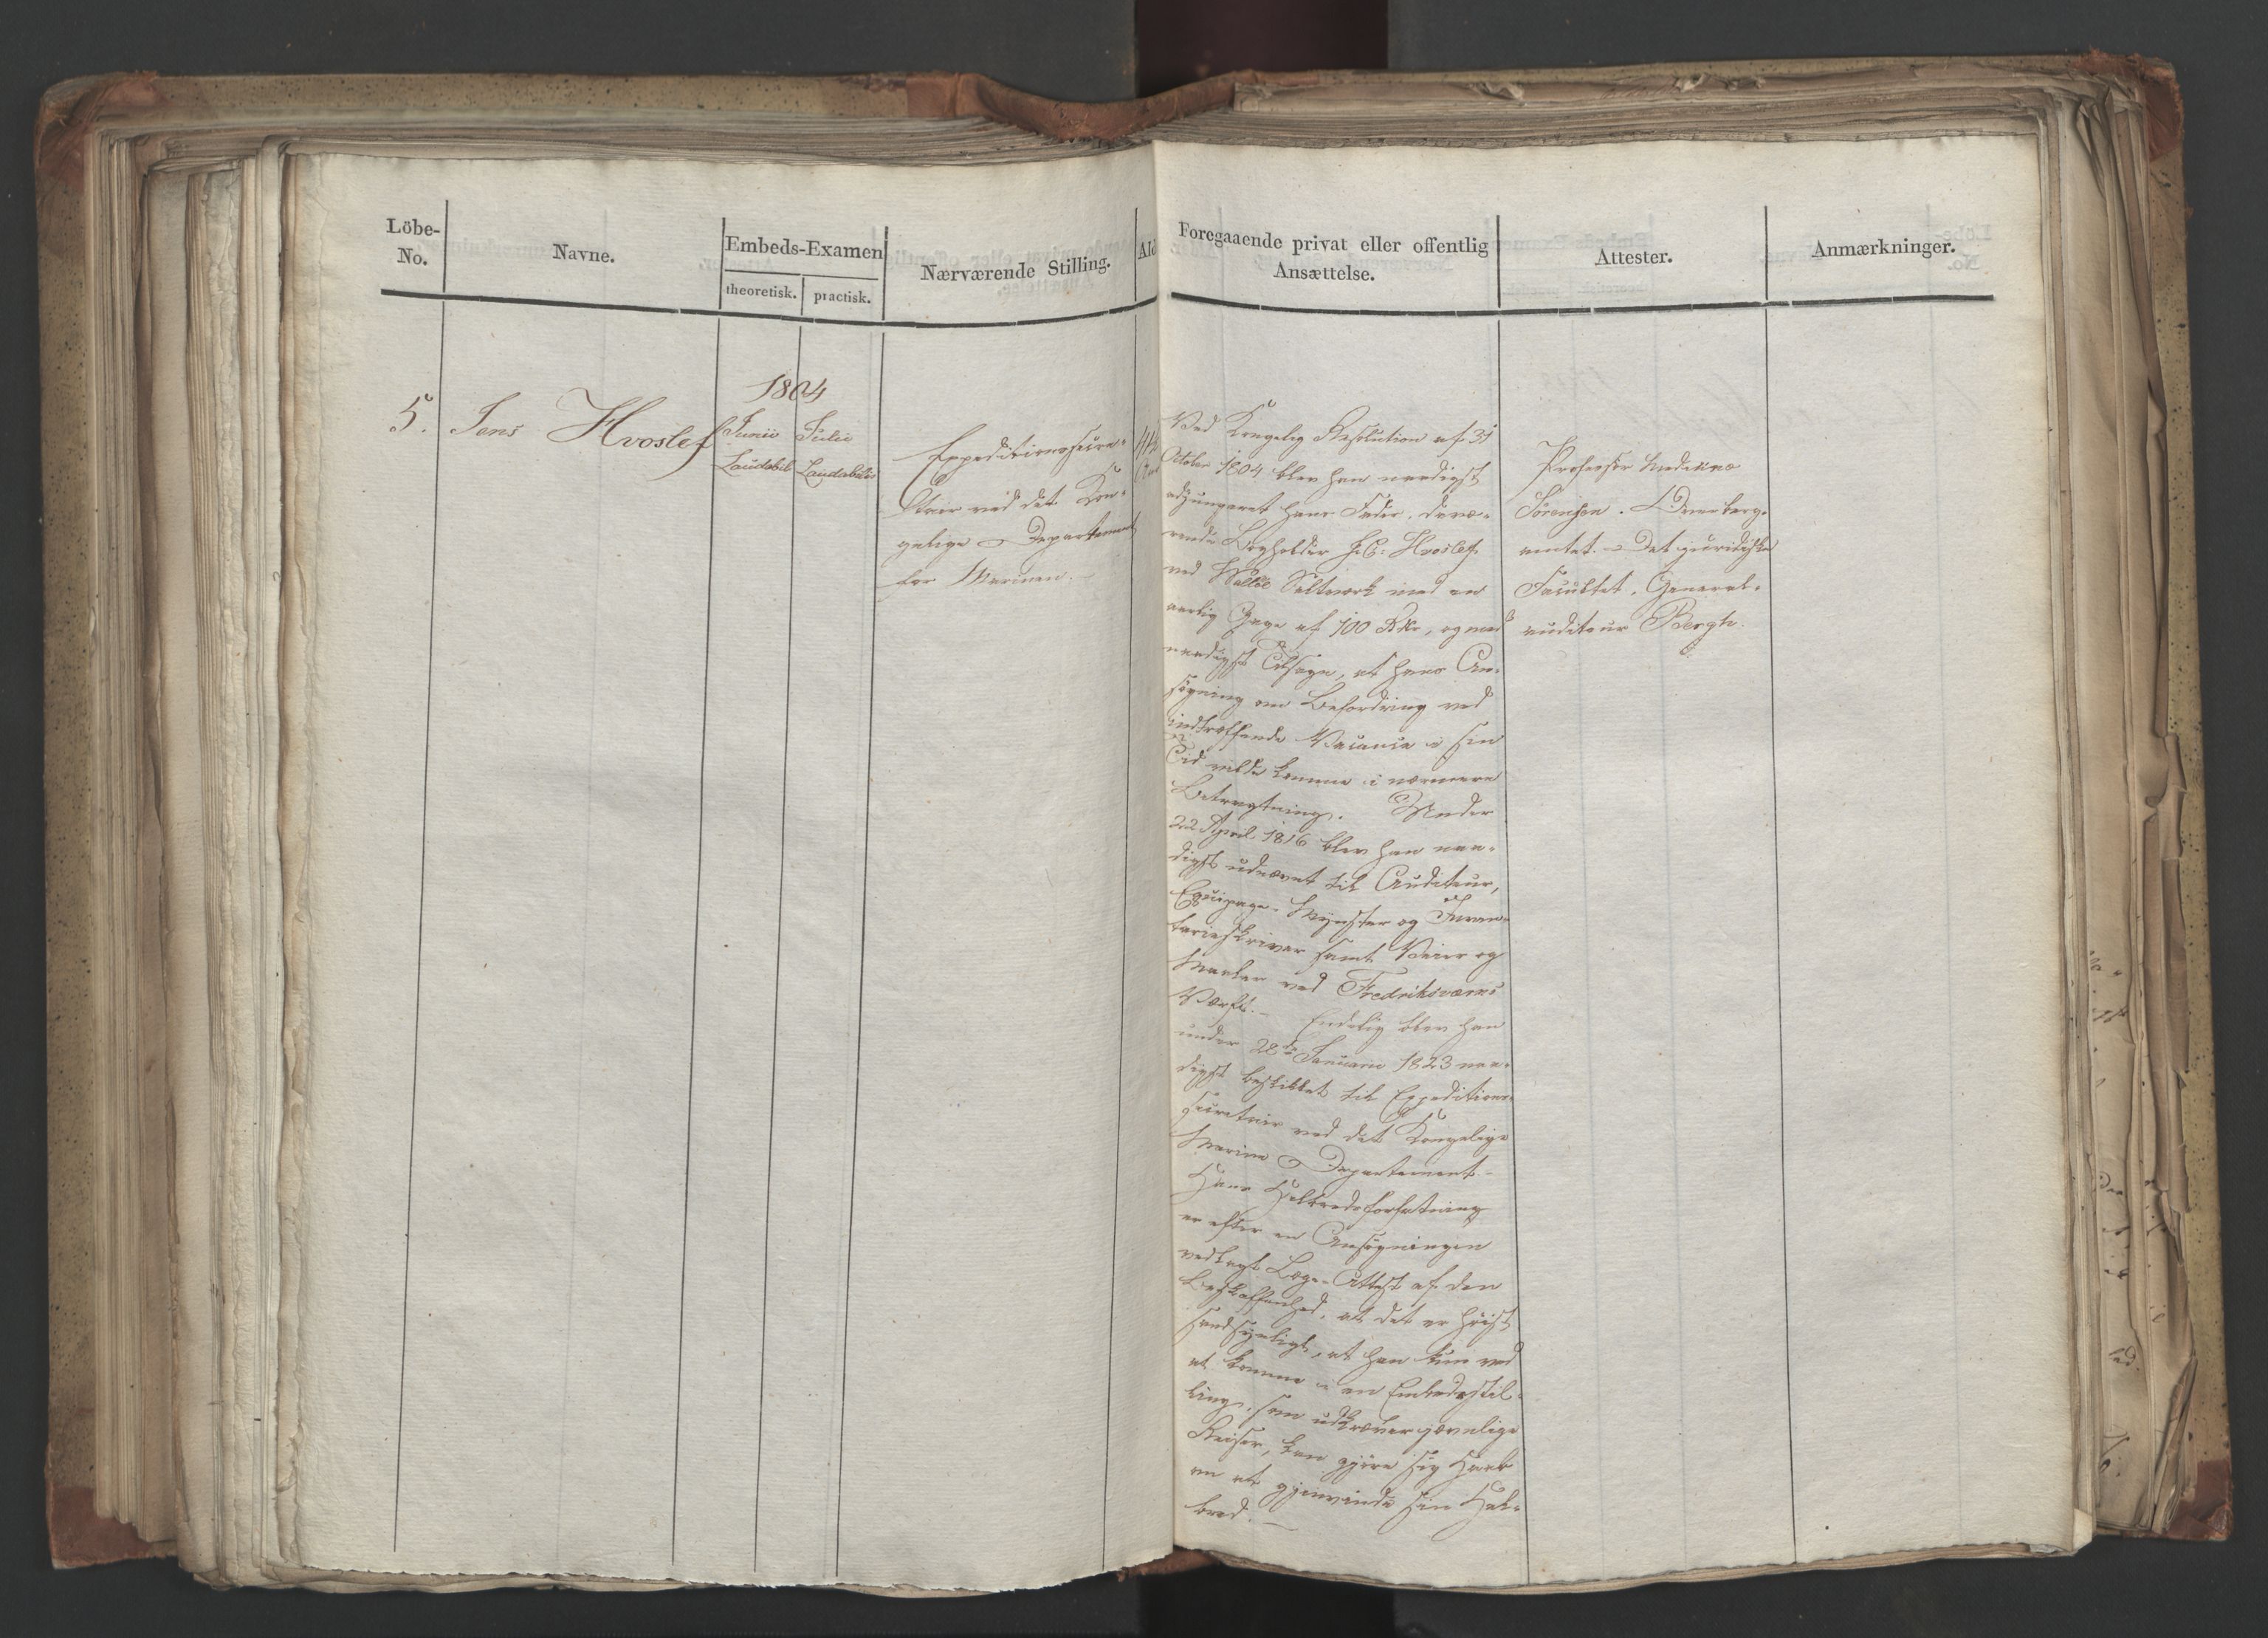 Löbe-
No.
Navne.
Embeds-Examen
theoretisk.
practisk.
Nærværende Stilling.
Ald
Foregaaende privat eller offentlig
Ansættelse.
Attester.
Anmærkninger.
5.
Jens Hvoslef
1804
Junii
Laudabil
Julii
Laudabilis
Expeditionssecre-
tair ved det Kon-
gelige Departement
for Marinen. -
Ved Kongelig Resolution af 31
October 1804 blev han naadigst
adjungeret hans Fader, davæ-
rende Bogholder Hvoslef
ved Walløe Saltværk med en
aarlig Gage af 100 Rdr, og med
naadigst Tilsagn, at hans An-
søgning om Befordring ved
indtræffende Vacance i sin
Tid vilde komme i nærmere
Betragtning. Under
22 April 1816 blev han naa-
digst udnævnt til Auditeur,
Equipage-Mynster og Inven-
tarieskriver samt Veier og
Maaler ved Fredriksværns
Værft. - Endelig blev han
under 28de Januarii 1823 naa-
digst beskikket til Expeditions-
secretair ved det Kongelige
Marine Departement -
Hans Helbredsforfatning
er efter en Ansøgningen
vedlagt Læge-Attest af den
Beskaffenhed, at det er høist
sandsynligt, at han kun ved
at komme i en Embedsstil-
ling, som udkræver jævnlige
Reiser, kan gjøre sig Haab
om at gjenvinde sin Hel-
bred. -
Professor Medicinæ
Sørensen.
Det juridiske
Facultet. General-
auditeur Bergh.